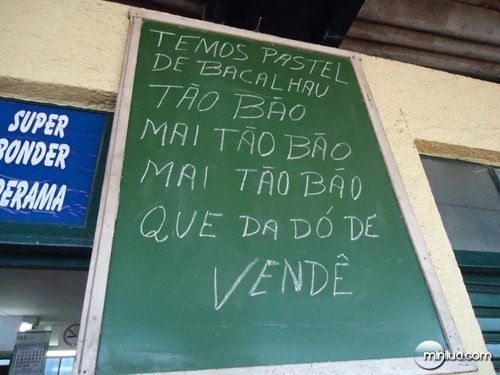 TEMOS PASTEL
DE BACALHAU
TÃO BÃO
MAI TÃO BÃO
MAI TÃO BÃO
QUE DA DÓ DE
VENDÊ
SUPER
BONDER
DERAMA
mhlud.com